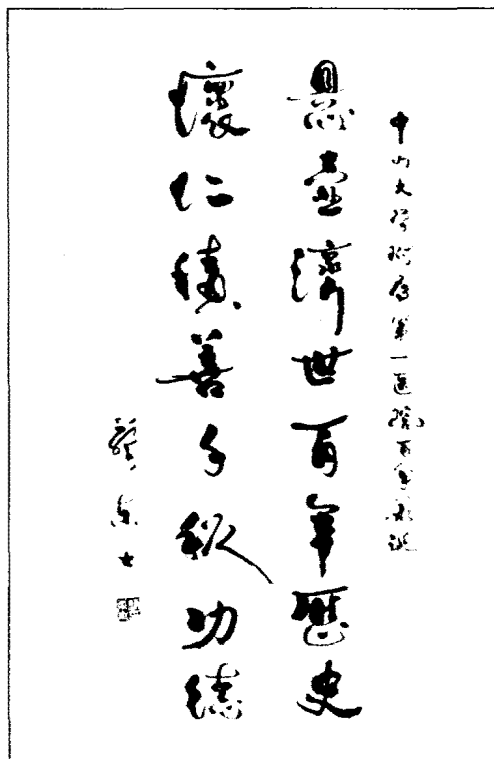 中山大学附属第一医院百年永诞
悬壶济世百年历史
怀仁积善千秋功德